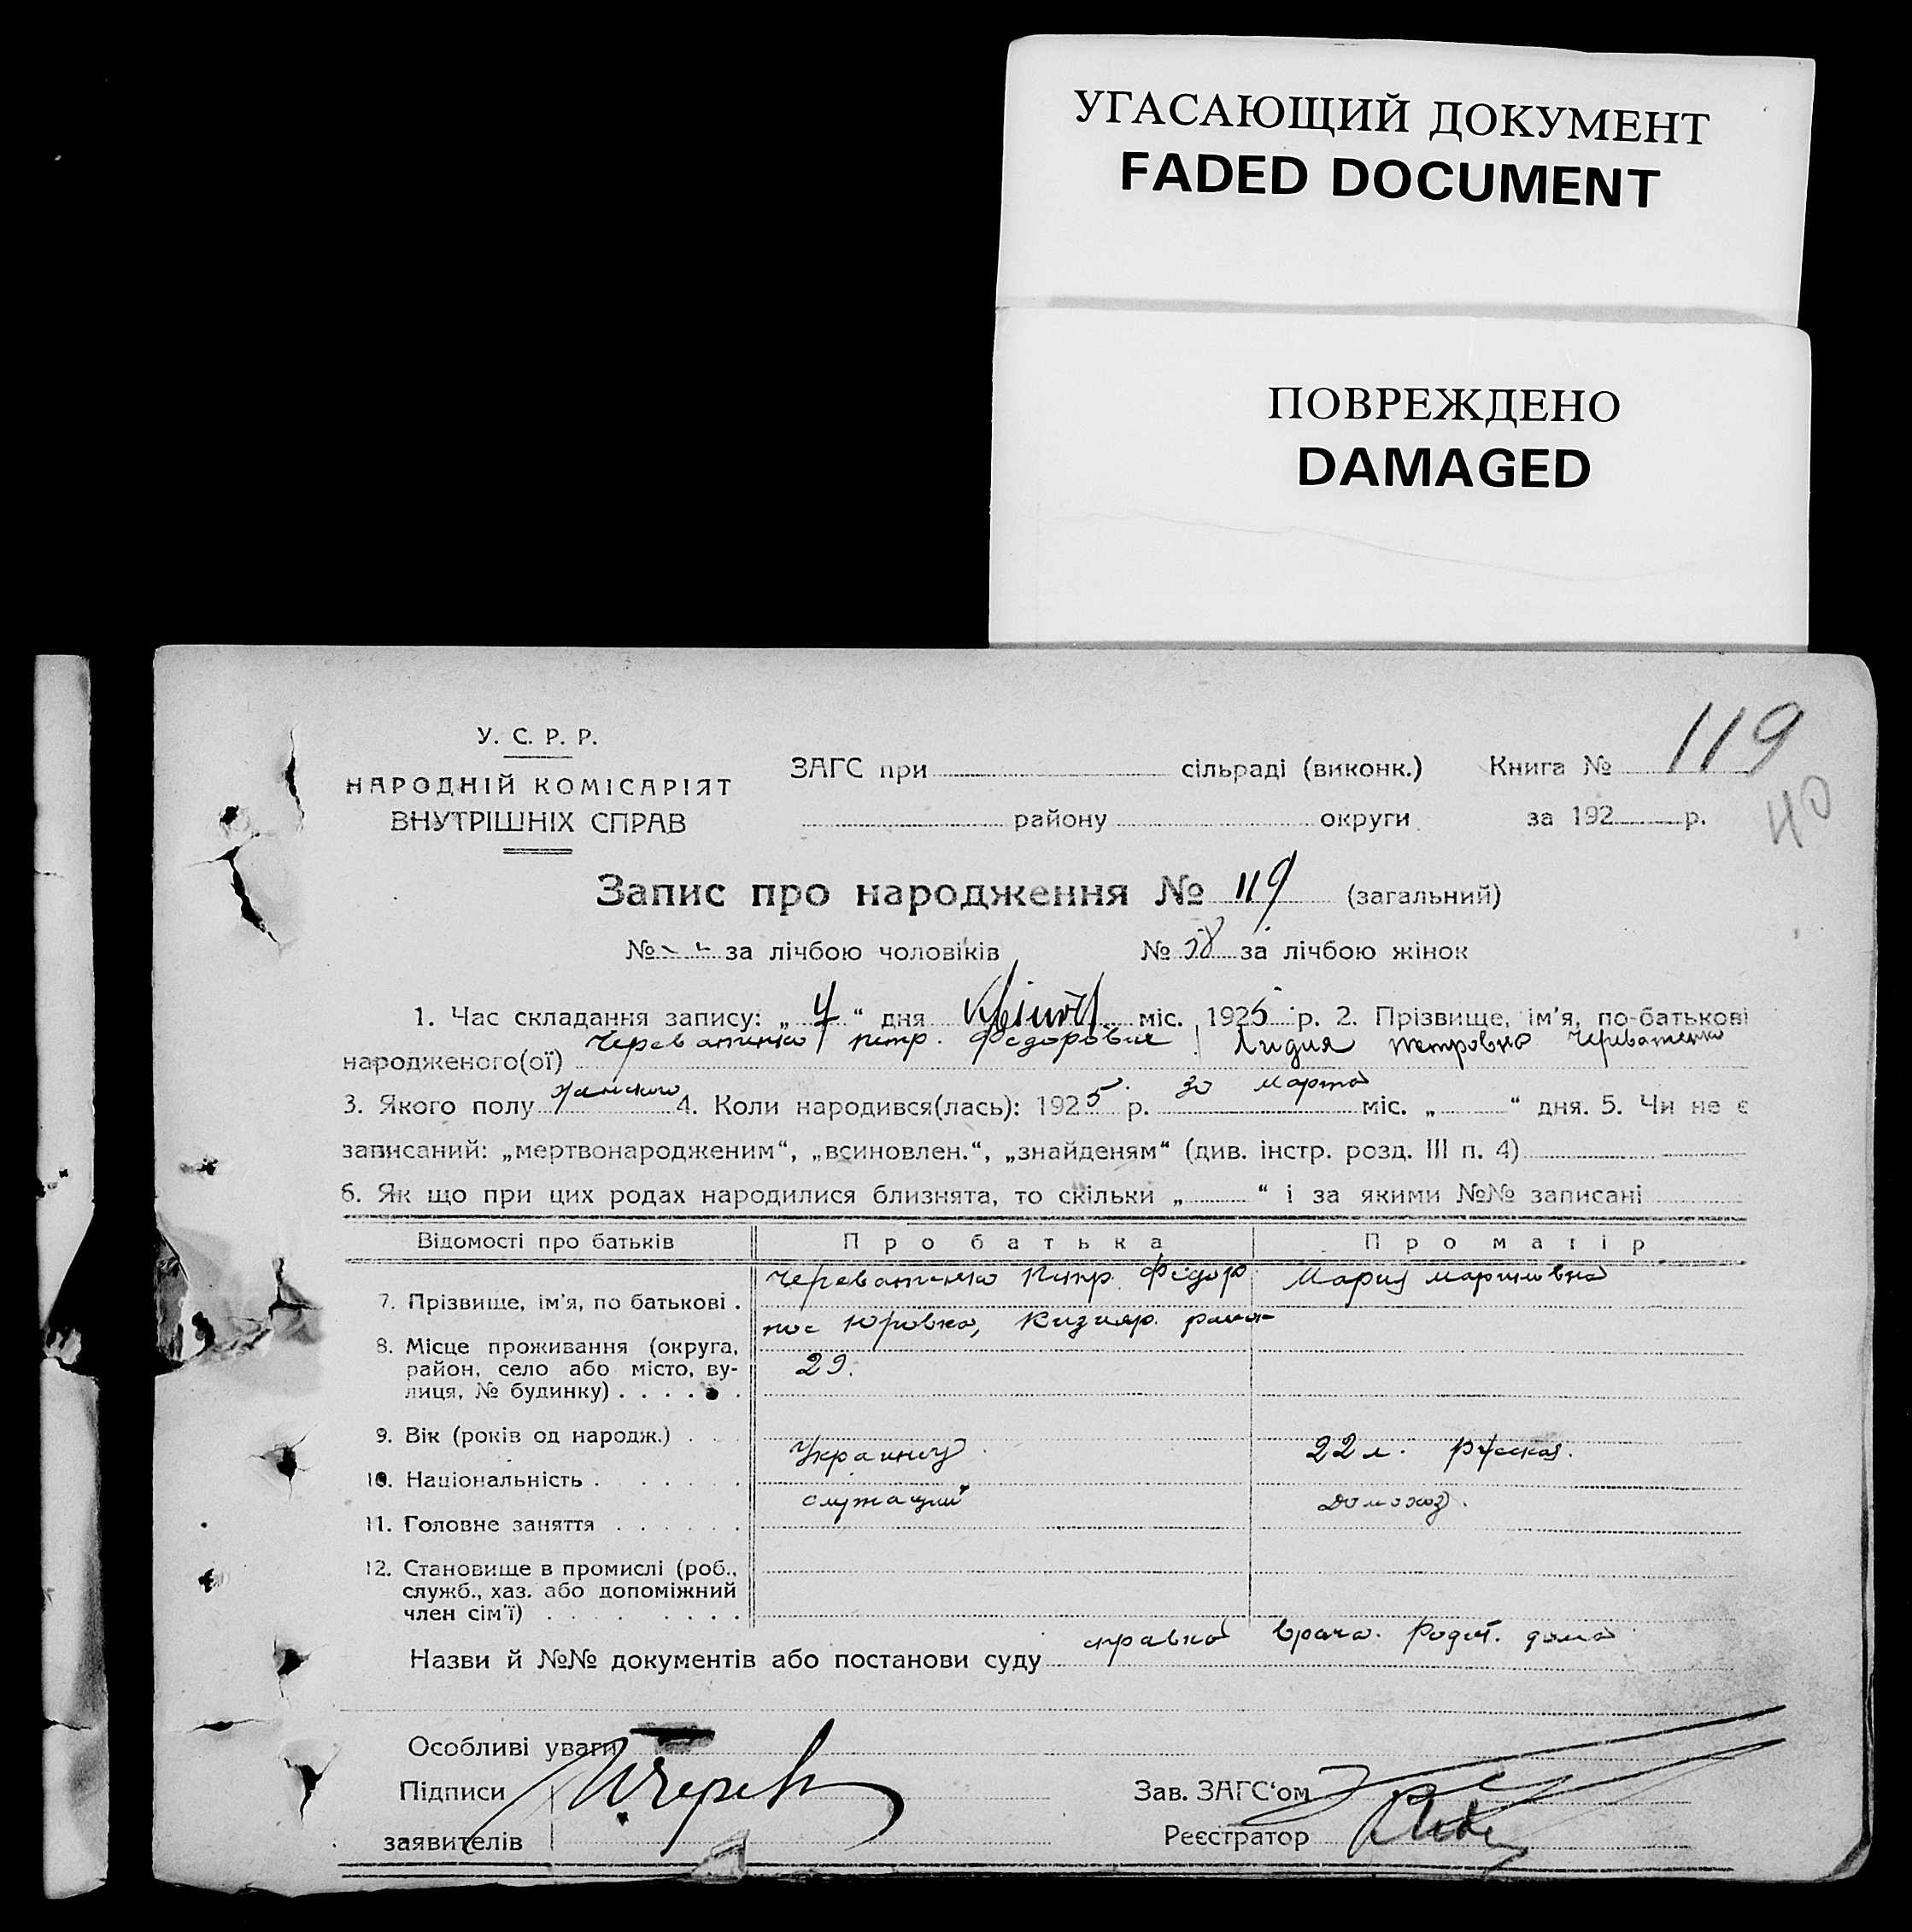 УГАСАЮЩИЙ ДОКУМЕНТ
FADED DOCUMENT
ПОВРЕЖДЕНО
DAMAGED
119
40
У. С. Р. Р.
НАРОДНІЙ КОМІСАРІЯТ
ВНУТРІШНІХ СПРАВ
ЗАГС при сільраді (виконк.) Книга №
району округи за 192 р.
Запис про народження № 119 (загальний)
№ за лічбою чоловіків № 58 за лічбою жінок
1. Час складання запису: „ 4 “ дня міс. 1925 р. 2. Прізвище, ім’я, по-батькові
народженого(ої) Череватенко Петр. Федорович Лидия Петровна Череватенко
3. Якого полу женского 4. Коли народився(лась): 1925 р. 30 марта міс. „ “ дня. 5. Чи не є
записаний: „мертвонародженим“, „всиновлен.“, „знайденям“ (див. інстр. розд. III п. 4)
6. Як що при цих родах народилися близнята, то скільки „ “ і за якими №№ записані
Відомості про батьків Про батька Про матір
7. Прізвище, ім’я, по батькові . Череватенко Петр Федор Мария
8. Місце проживання (округа, район, село або місто, вулиця, № будинку) . . . . . пос Юровка, Кизияр. район
29.
9. Вік (років од народж.) . . . 22 л.
10. Національність . . . . . Украинец Русская.
11. Головне заняття . . . . . . служащий домохоз.
12. Становище в промислі (роб.,
служб., хаз. або допоміжний
член сім’ї) . . . . . . .
Назви й №№ документів або постанови суду справка врача. Родил. дома
Особливі уваги
Підписи П Черев Зав. ЗАГС‘ом
заявителів Реєстратор